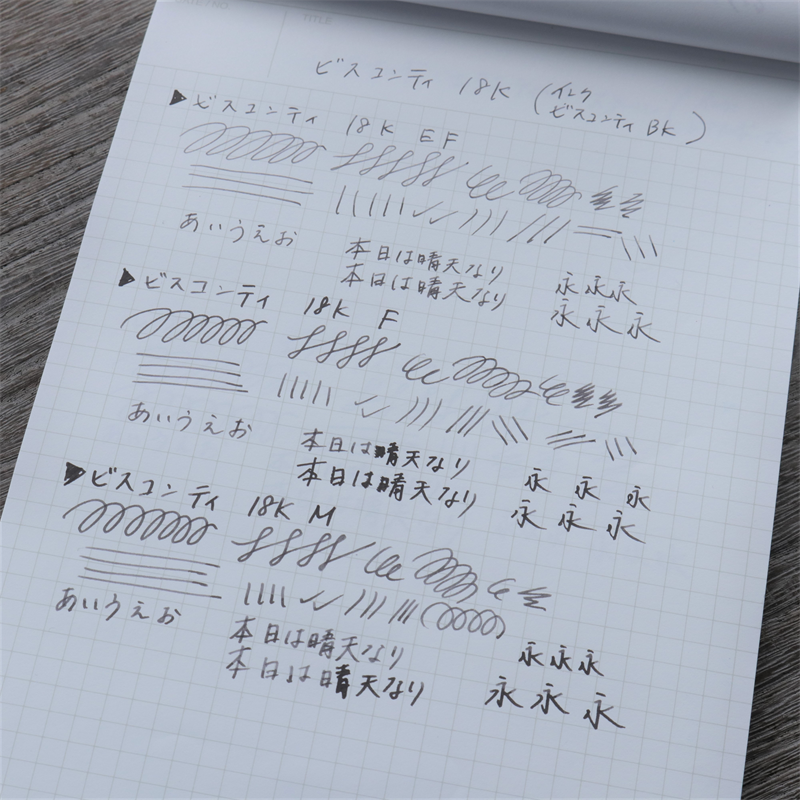 TITLE
ビスコンティ 18K (インク ビスコンティ BK)
▶ビスコンティ 18K EF
あいうえお
本日は晴天なり
本日は晴天なり
永永永
永永永
▶ビスコンティ 18K F
あいうえお
本日は晴天なり
本日は晴天なり
永永永
永永永
▶ビスコンティ 18K M
あいうえお
本日は晴天なり
本日は晴天なり
永永永
永永永